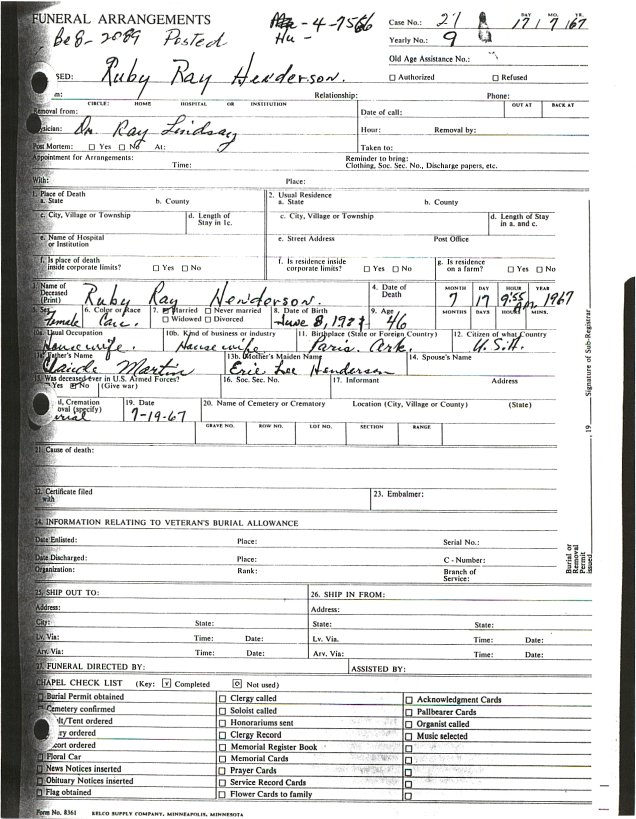 FUNERAL ARRANGEMENTS
Posted
Case No.: 21
DAY YR.
17 / 7 / 67
Yearly No.: 9
Old Age Assistance No.:
SED: Ruby Ray Henderson.
☐ Authorized ☐ Refused
Relationship: Phone:
CIRCLE: HOME HOSPITAL OR INSTITUTION OUT AT BACK AT
Removal from: Date of call:
sician: Dr. Ray Lindsay Hour: Removal by:
Post Mortem: ☐ Yes ☐ No At: Taken to:
Appointment for Arrangements: Time: Reminder to bring:
Clothing, Soc. Sec. No., Discharge papers, etc.
With: Place:
1. Place of Death 2. Usual Residence
a. State b. County a. State b. County
c. City, Village or Township d. Length of Stay in 1c. c. City, Village or Township d. Length of Stay in a. and c.
e. Name of Hospital or Institution e. Street Address Post Office
f. Is place of death inside corporate limits? ☐ Yes ☐ No f. Is residence inside corporate limits? ☐ Yes ☐ No g. Is residence on a farm? ☐ Yes ☐ No
3. Name of Deceased (Print) Ruby Ray Henderson. 4. Date of Death MONTH DAY HOUR YEAR
7 17 9:55 1967
5. Sex 6. Color or Race 7. Married ☐ Never married ☐ Widowed ☐ Divorced 8. Date of Birth 9. Age MONTHS DAYS HOURS MINS.
Female Cau. June 8, 46
10a. Usual Occupation 10b. Kind of business or industry 11. Birthplace (State or Foreign Country) 12. Citizen of what Country
Housewife. Housewife. Paris. Ark. U.S.A.
13a. Father's Name 13b. Mother's Maiden Name 14. Spouse's Name
Claude Martin Eric Lee Henderson
15. Was deceased ever in U.S. Armed Forces? Yes No (Give war) 16. Soc. Sec. No. 17. Informant Address
l, Cremation oval (specify) 19. Date 20. Name of Cemetery or Crematory Location (City, Village or County) (State)
urial 7-19-67
GRAVE NO. ROW NO. LOT NO. SECTION RANGE
21. Cause of death:
22. Certificate filed with 23. Embalmer:
24. INFORMATION RELATING TO VETERAN'S BURIAL ALLOWANCE
Date Enlisted: Place: Serial No.:
Date Discharged: Place: C - Number:
Organization: Rank: Branch of Service:
25. SHIP OUT TO: 26. SHIP IN FROM:
Address: Address:
City: State: State: State:
Lv. Via: Time: Date: Lv. Via. Time: Date:
Arv. Via: Time: Date: Arv. Via: Time: Date:
27. FUNERAL DIRECTED BY: ASSISTED BY:
CHAPEL CHECK LIST (Key: ☑ Completed Not used)
☐ Burial Permit obtained ☐ Clergy called ☐ Acknowledgment Cards
Cemetery confirmed ☐ Soloist called ☐ Pallbearer Cards
lt/Tent ordered ☐ Honorariums sent ☐ Organist called
ry ordered ☐ Clergy Record ☐ Music selected
cort ordered ☐ Memorial Register Book ☐
☐ Floral Car ☐ Memorial Cards ☐
☐ News Notices inserted ☐ Prayer Cards ☐
☐ Obituary Notices inserted ☐ Service Record Cards ☐
☐ Flag obtained ☐ Flower Cards to family ☐
Form No. 8361 KELCO SUPPLY COMPANY, MINNEAPOLIS, MINNESOTA
Burial or Removal Permit issued , 19 Signature of Sub-Registrar